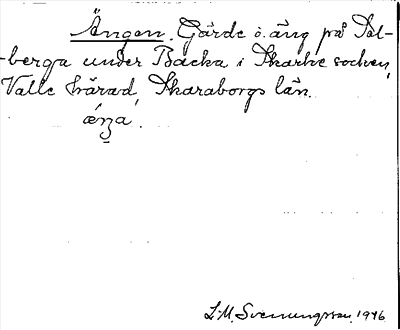 Ängen. Gärde o. äng på Sal-
-berga under Backa i Skarke socken,
Valle härad, Skaraborgs län.
ǽŋa.
L.M. Svenungsson. 1946.